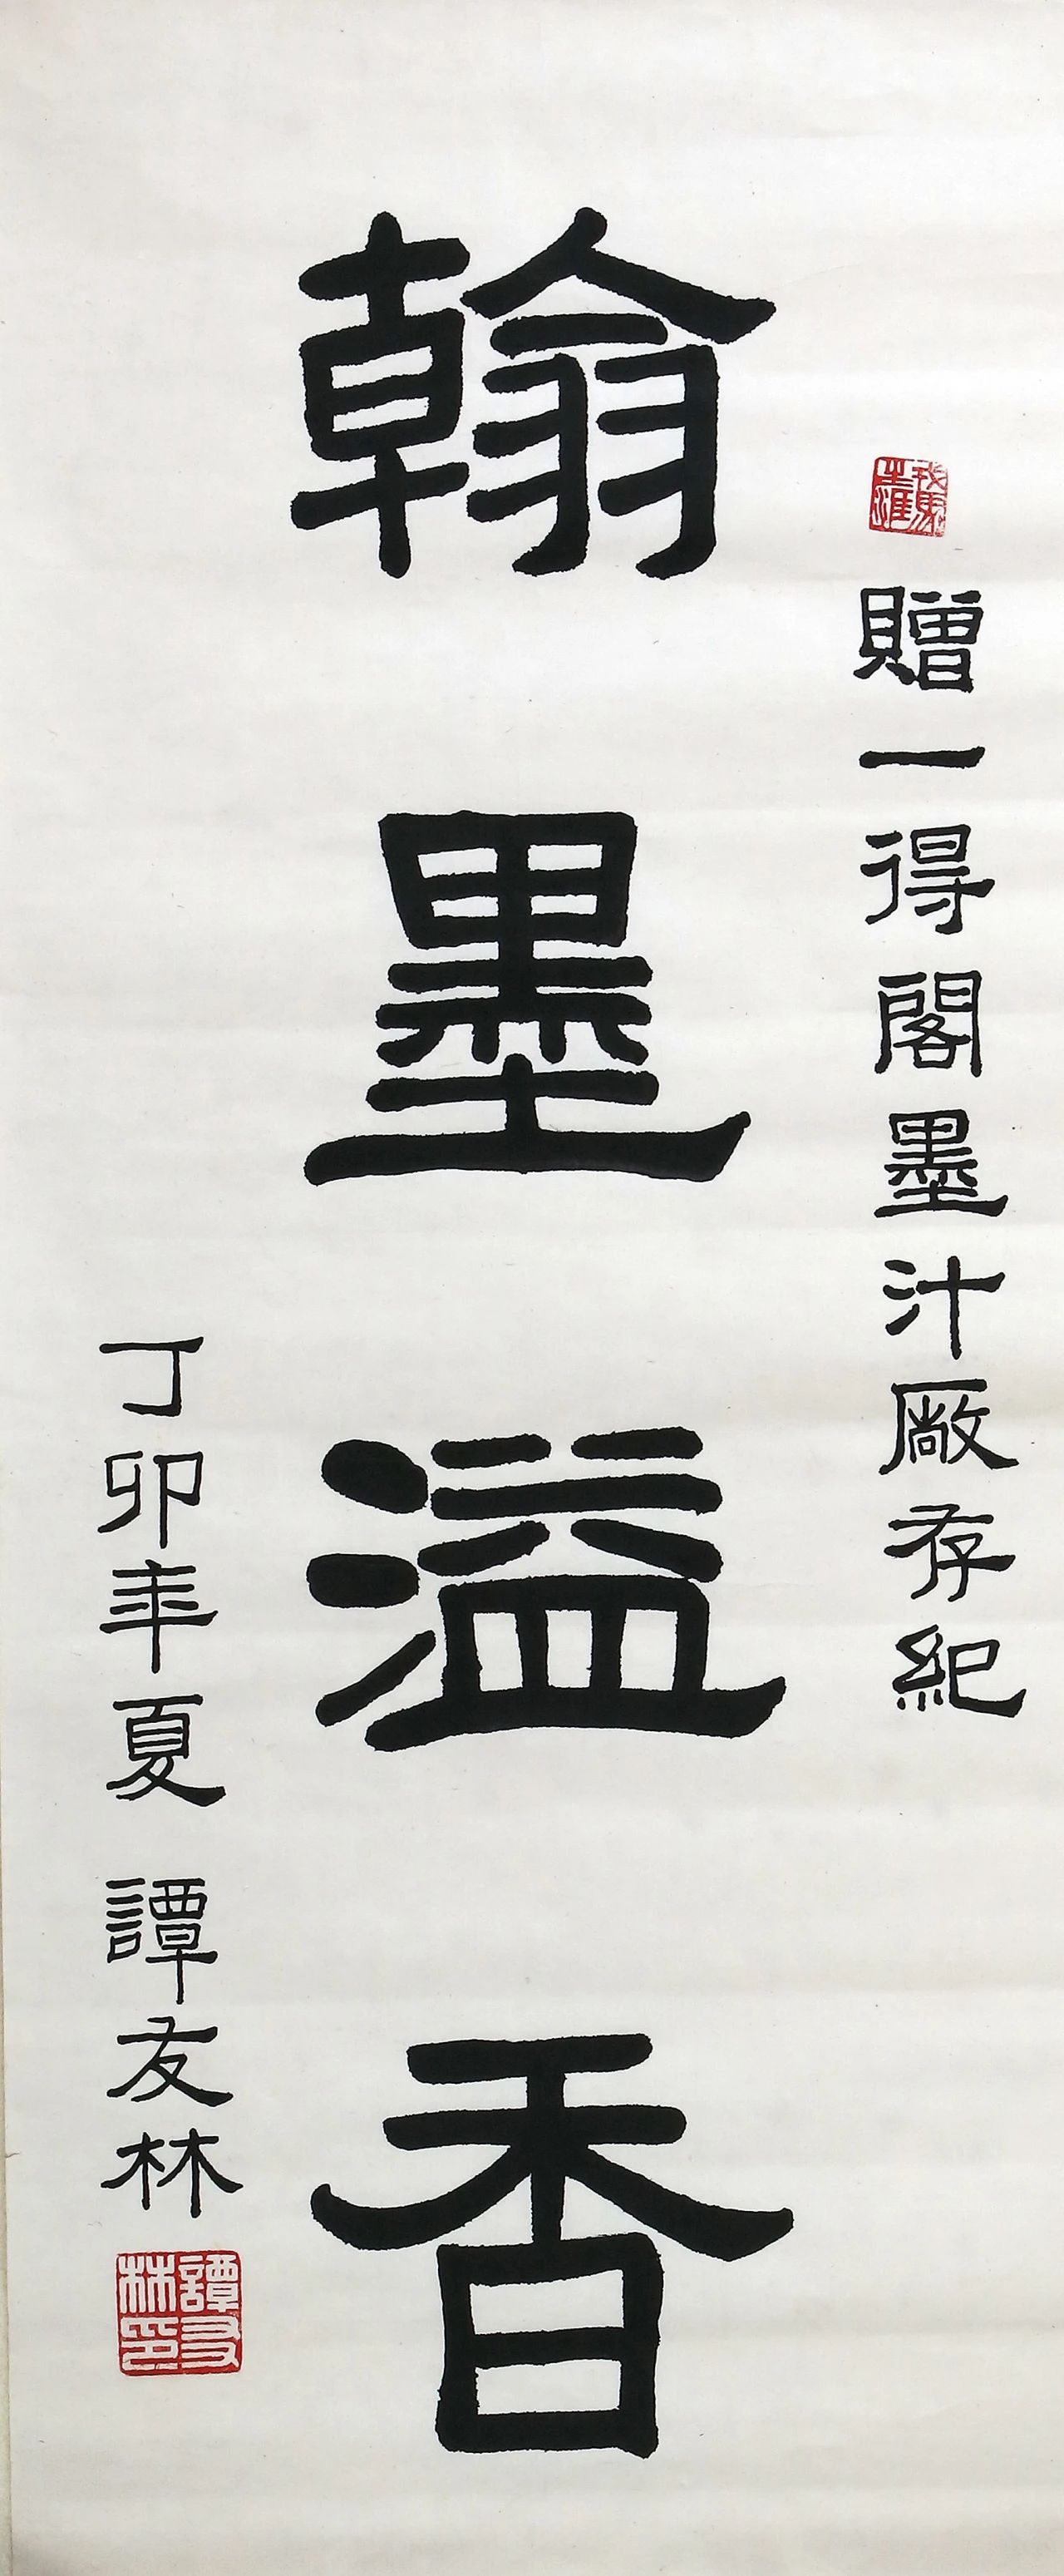 贈一得閣墨汁廠存紀
翰墨溢香
丁卯年夏 譚友林
譚友林印